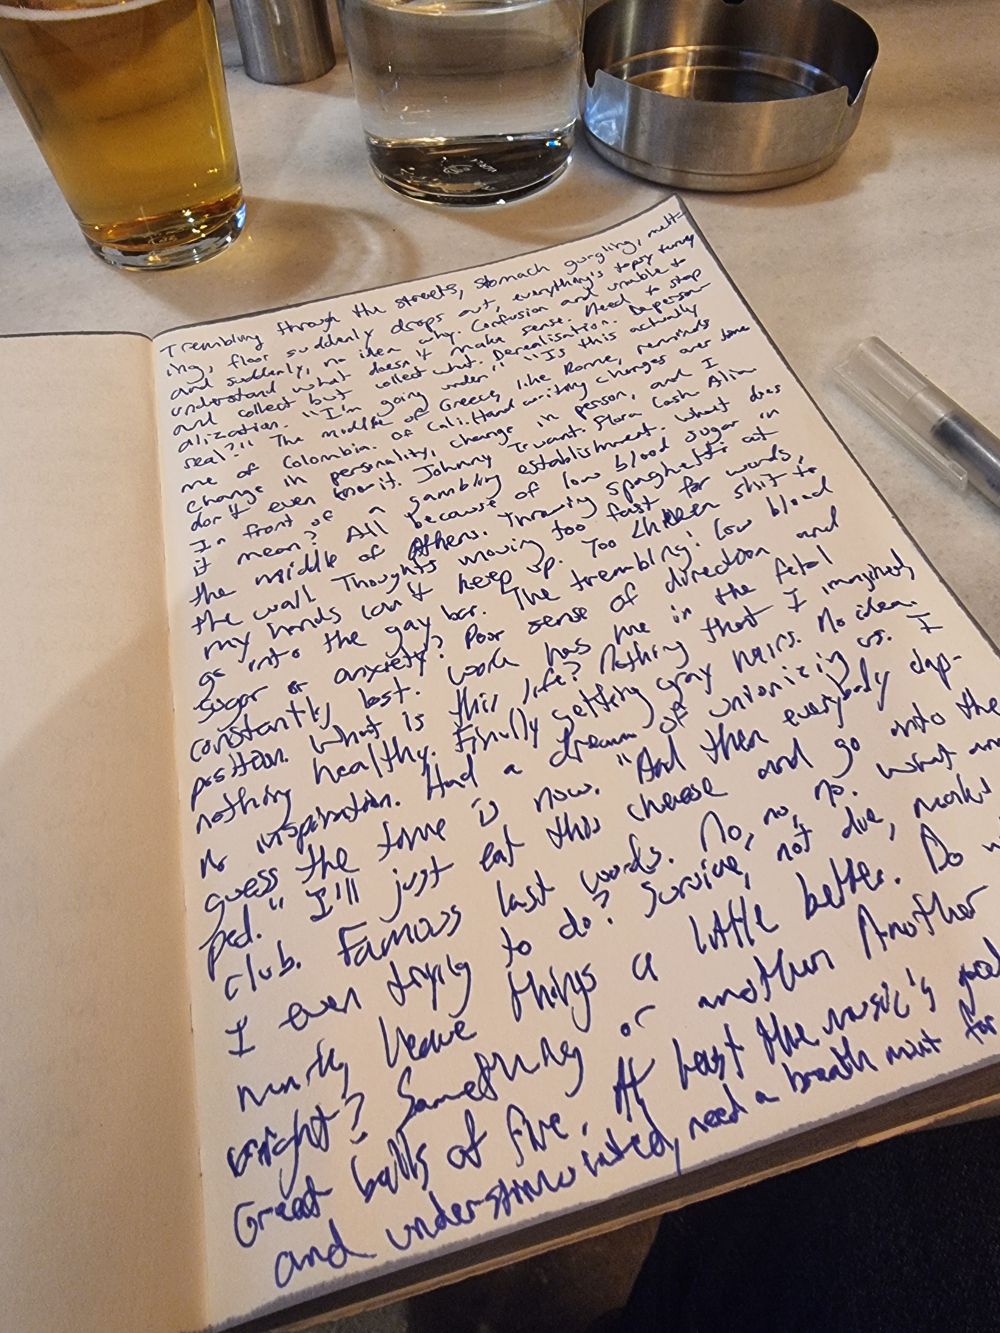 Trembling through the streets, stomach gurgling, melt-
ing, floor suddenly drops out, everything's topsy turvy
and suddenly, no idea why. Confusion and unable to
understand what doesn't make sense. Need to stop
and collect but collect what. Derealisation. Deperson-
alization. "I'm going under." "Is this actually
real?" The middle of Greece, like Rome, reminds
me of Colombia. Of Cali. Handwriting changes over time
change in personality, change in person, and I
don't even know it. Johnny Truant. Flora Cash Alin
In front of a gambling establishment. What does
it mean? All because of low blood sugar in
the middle of Athens. Throwing spaghetti at
the wall. Thoughts moving too fast for words,
my hands can't keep up. Too chicken shit to
go into the gay bar. The trembling: low blood
sugar or anxiety? Poor sense of direction and
constantly lost. Work has me in the fetal
position. What is this life? Nothing that I imagined,
nothing healthy. Finally getting gray hairs. No idea.
no inspiration. Had a dream of unionizing us. I
guess the time is now. "And then everybody clap-
ped." I'll just eat this cheese and go into the
club. Famous last words. No, no, no. What am
I even trying to do? Survive, not die, make
munity, leave things a little better. Do
wright? Something or another Another
Great balls of fire. At least the music's good
and understimulated, need a breath mint for